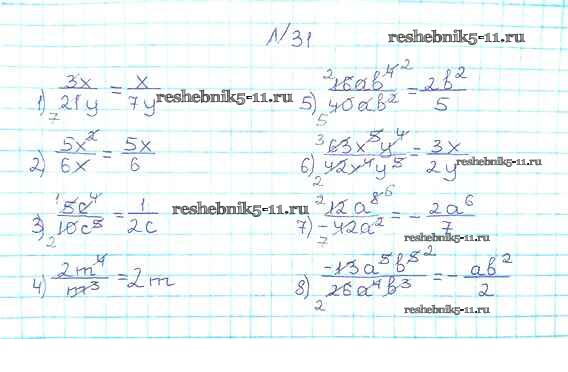 N31
reshebnik5-11.ru
1) 3x/21y 7 = x/7y
reshebnik5-11.ru
2) 5x²/6x = 5x/6
3) 1 5c⁴/10c⁵ 2 = 1/2c
reshebnik5-11.ru
4) 2m⁴/m³ = 2m
5) 2 16ab⁴ 2/40ab² 5 = 2b²/5
6) 3 63x⁵y⁴/42x⁴y⁵ 2 = 3x/2y
reshebnik5-11.ru
7) 2 12a⁸ 6/-42a² 7 = -2a⁶/7
reshebnik5-11.ru
8) -13a⁵b⁵ 2/26a⁴b³ 2 = -ab²/2
reshebnik5-11.ru